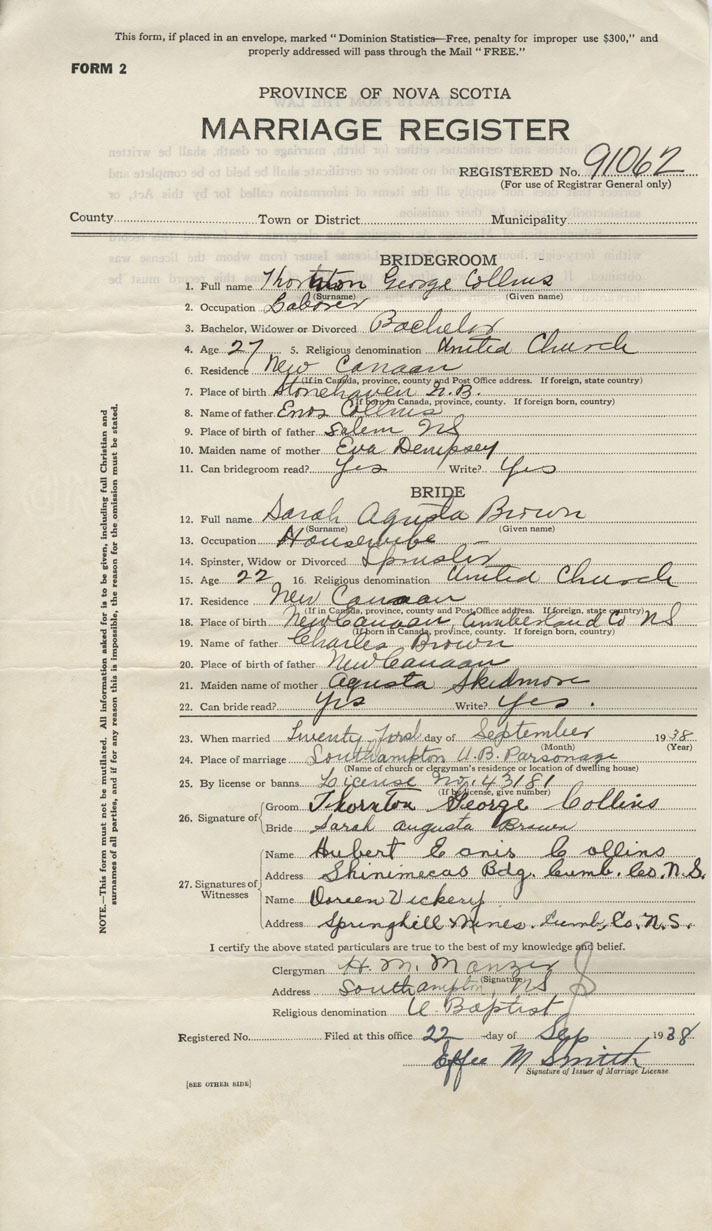 This form, if placed in an envelope, marked "Dominion Statistics—Free, penalty for improper use $300," and
properly addressed will pass through the Mail "FREE."
FORM 2
PROVINCE OF NOVA SCOTIA
MARRIAGE REGISTER
REGISTERED No. 91062
(For use of Registrar General only)
County Town or District Municipality
BRIDEGROOM
1. Full name Thornton George Collins
(Surname) (Given name)
2. Occupation Laborer
3. Bachelor, Widower or Divorced Bachelor
4. Age 27 5. Religious denomination United Church
6. Residence New Canaan
(If in Canada, province, county and Post Office address. If foreign, state country)
7. Place of birth Stonehaven N.B.
(If born in Canada, province, county. If foreign born, country)
8. Name of father Enos Collins
9. Place of birth of father Salem NS
10. Maiden name of mother Eva Dempsey
11. Can bridegroom read? Yes Write? Yes
BRIDE
12. Full name Sarah Agusta Brown
(Surname) (Given name)
13. Occupation Housewife
14. Spinster, Widow or Divorced Spinster
15. Age 22 16. Religious denomination United Church
17. Residence New Canaan
(If in Canada, province, county and Post Office address. If foreign, state country)
18. Place of birth New Canaan, Cumberland Co NS
(If born in Canada, province, county. If foreign born, country)
19. Name of father Charles Brown
20. Place of birth of father New Canaan
21. Maiden name of mother Agusta Skidmore
22. Can bride read? Yes Write? Yes.
23. When married Twenty first day of September 1938
(Month) (Year)
24. Place of marriage Southampton U.B. Parsonage
(Name of church or clergyman's residence or location of dwelling house)
25. By license or banns License No. 43181
(If by license, give number)
26. Signature of Groom Thornton George Collins
Bride Sarah Augusta Brown
27. Signatures of Witnesses
Name Hubert Collins
Address Shinimecas Bdg. Cumb. Co. N.S.
Name Doreen Vickery
Address Springhill Mines. Cumb. Co. N.S.
I certify the above stated particulars are true to the best of my knowledge and belief.
Clergyman H. M. Manzer
(Signature)
Address Southampton, NS
Religious denomination U. Baptist
Registered No. Filed at this office 22 day of Sep 1938
Effie M Smith
Signature of Issuer of Marriage License
[SEE OTHER SIDE]
NOTE.—This form must not be mutilated. All information asked for is to be given, including full Christian and
surnames of all parties, and if for any reason this is impossible, the reason for the omission must be stated.